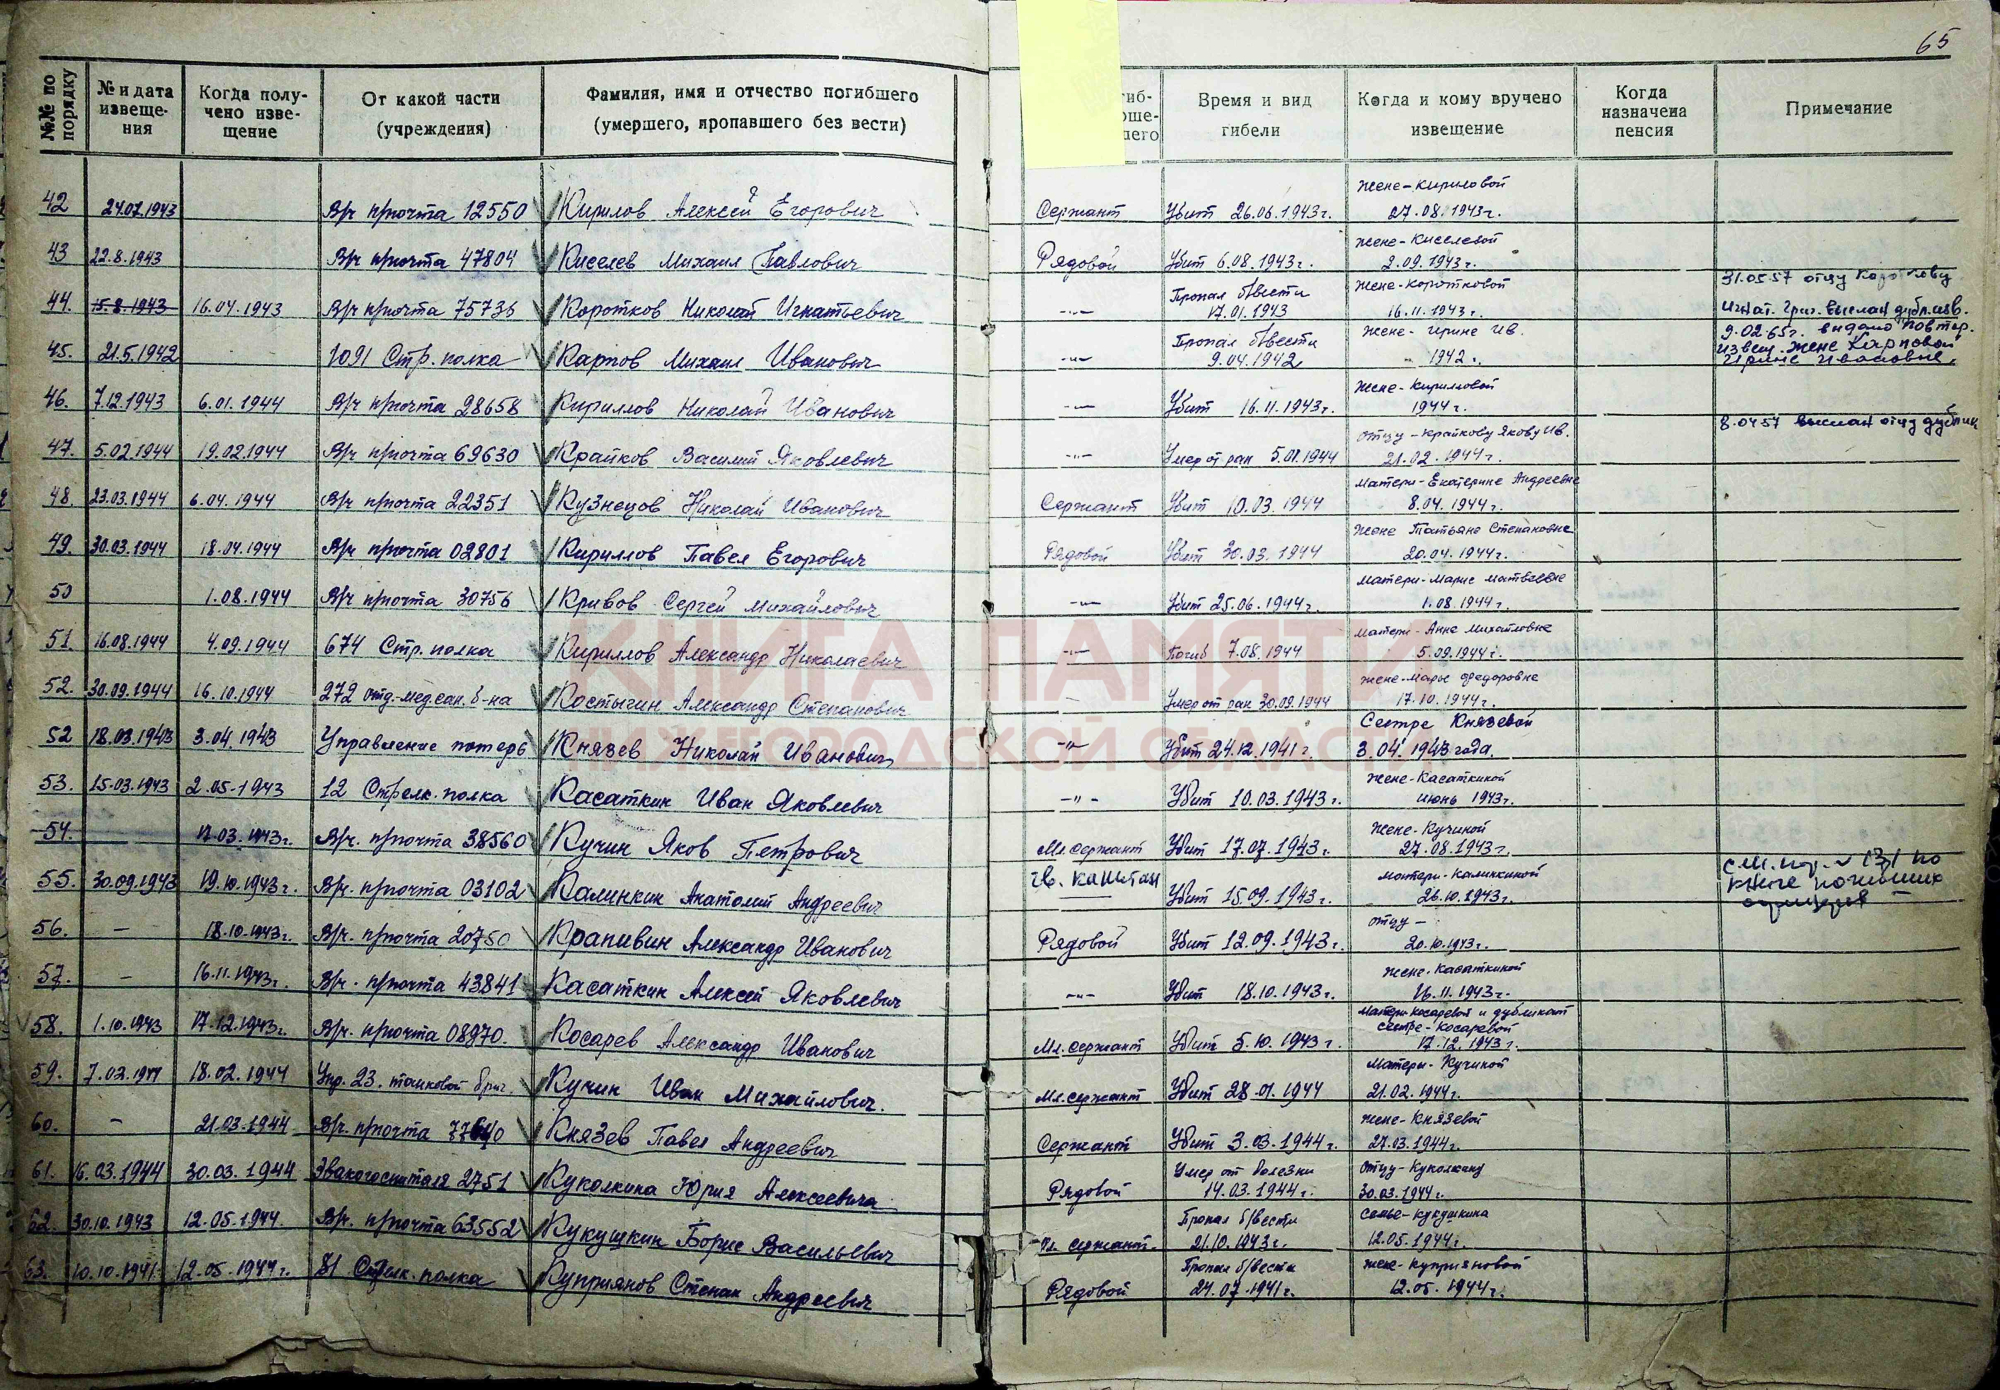 65
№№ по порядку | № и дата извеще-ния | Когда полу-чено изве-щение | От какой части (учреждения) | Фамилия, имя и отчество погибшего (умершего, пропавшего без вести) | гиб- оше- его | Время и вид гибели | Когда и кому вручено извещение | Когда назначена пенсия | Примечание
42 | 24.07.1943 | | В/ч п/почта 12550 | Кирилов Алексей Егорович | Сержант | Убит 26.06.1943г. | Жене-Кириловой 27.08.1943г.
43 | 22.8.1943 | | В/ч п/почта 47804 | Киселев Михаил Павлович | Рядовой | Убит 6.08.1943г. | Жене-Киселевой 2.09.1943г.
44. | 15.8.1943 | 16.04.1943 | В/ч п/почта 75736 | Коротков Николай Игнатьевич | -"- | Пропал б/вести 17.01.1943 | Жене-Коротковой 16.11.1943г. | 31.05.57 отцу Короткову Игнат. Григ. выслан дубл.изв.
45. | 21.5.1942 | | 1091 Стр. полка | Карпов Михаил Иванович | -"- | Пропал б/вести 9.04.1942 | Жене-Ирине Ив. 1942г. | 9.02.65г. выдано повтор. извещ. жене Карповой Ирине Ивановне.
46. | 7.12.1943 | 6.01.1944 | В/ч п/почта 28658 | Кириллов Николай Иванович | -"- | Убит 16.11.1943г. | Жене-Кирилловой 1944г.
47. | 5.02.1944 | 19.02.1944 | В/ч п/почта 69630 | Крайков Василий Яковлевич | -"- | Умер от ран 5.01.1944 | Отцу-Крайкову Якову Ив. 21.02.1944г. | 8.04.57 выслан отцу дублик
48. | 23.03.1944 | 6.04.1944 | В/ч п/почта 22351 | Кузнецов Николай Иванович | Сержант | Убит 10.03.1944 | Матери-Екатерине Андреевне 8.04.1944г.
49. | 30.03.1944 | 18.04.1944 | В/ч п/почта 02801 | Кириллов Павел Егорович | Рядовой | Убит 30.03.1944 | Жене Татьяне Степановне 20.04.1944г.
50 | | 1.08.1944 | В/ч п/почта 30756 | Кривов Сергей Михайлович | -"- | Убит 25.06.1944г. | Матери-Марие Матвеевне 1.08.1944г.
51. | 16.08.1944 | 4.09.1944 | 674 Стр. полка | Кириллов Александр Николаевич | -"- | Погиб 7.08.1944 | Матери-Анне Михайловне 5.09.1944г.
52. | 30.09.1944 | 16.10.1944 | 272 отд. мед. сан. б-на | Костыгин Александр Степанович | - | Умер от ран 30.09.1944 | Жене-Марье Федоровне 17.10.1944г.
52 | 18.03.1943 | 3.04.1943 | Управление потерь | Князев Николай Иванович | -"- | Убит 24.12.1941г. | Сестре Князевой 3.04.1943 года.
53. | 15.03.1943 | 2.05.1943 | 12 Стрелк. полка | Касаткин Иван Яковлевич | -"- | Убит 10.03.1943г. | Жене-Касаткиной июнь 1943г.
54. | | 17.03.1943г. | В/ч. п/почта 38560 | Кучин Яков Петрович | Мл. сержант | Убит 17.07.1943г. | Жене-Кучиной 27.08.1943г.
55. | 30.09.1943 | 19.10.1943г. | В/ч. п/почта 03102 | Калинкин Анатолий Андреевич | гв. капитан | Убит 15.09.1943г. | Матери-Калинкиной 26.10.1943г. | см. по книге погибших офицеров
56. | - | 18.10.1943г. | В/ч. п/почта 20750 | Крапивин Александр Иванович | Рядовой | Убит 12.09.1943г. | Отцу- 20.10.1943г.
57. | - | 16.11.1943г. | В/ч. п/почта 43841 | Касаткин Алексей Яковлевич | -"- | Убит 18.10.1943г. | Жене-Касаткиной 16.11.1943г.
58. | 1.10.1943 | 17.12.1943г. | В/ч. п/почта 08970. | Косарев Александр Иванович | Мл. сержант | Убит 5.10.1943г. | Матери Косаревой и дубликат сестре-Косаревой 17.12.1943г.
59. | 7.02.1944 | 18.02.1944 | Упр. 23. танковой бриг. | Кучин Иван Михайлович. | Мл. сержант | Убит 28.01.1944 | Матери-Кучиной 21.02.1944г.
60. | - | 21.03.1944 | В/ч. п/почта 77640 | Князев Павел Андреевич | Сержант | Убит 3.03.1944г. | Жене-Князевой 27.03.1944г.
61. | 16.03.1944 | 30.03.1944 | Эвакогоспиталя 2751 | Куколкина Юрия Алексеевича | Рядовой | Умер от болезни 14.03.1944г. | Отцу-Куколкину 30.03.1944г.
62. | 30.10.1943 | 12.05.1944. | В/ч. п/почта 63552 | Кукушкин Борис Васильевич | Мл. сержант. | Пропал б/вести 21.10.1943г. | Семье-Кукушкина 12.05.1944г.
63. | 10.10.1941 | 12.05.1944г. | 81 Стрелк. полка | Куприянов Степан Андреевич | Рядовой | Пропал б/вести 24.07.1941г. | Жене-Куприяновой 12.05.1944г.
КНИГА ПАМЯТИ
НИЖЕГОРОДСКОЙ ОБЛАСТИ